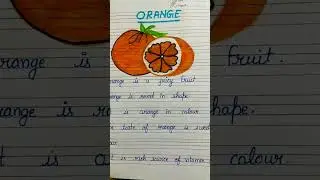 ORANGE
range is a juicy fruit
range is round in shape
is orange in colour
taste of orange is sweet
t is rich source of vitamin
range is
fruit.
range is ro
shape.
t is a
colour.